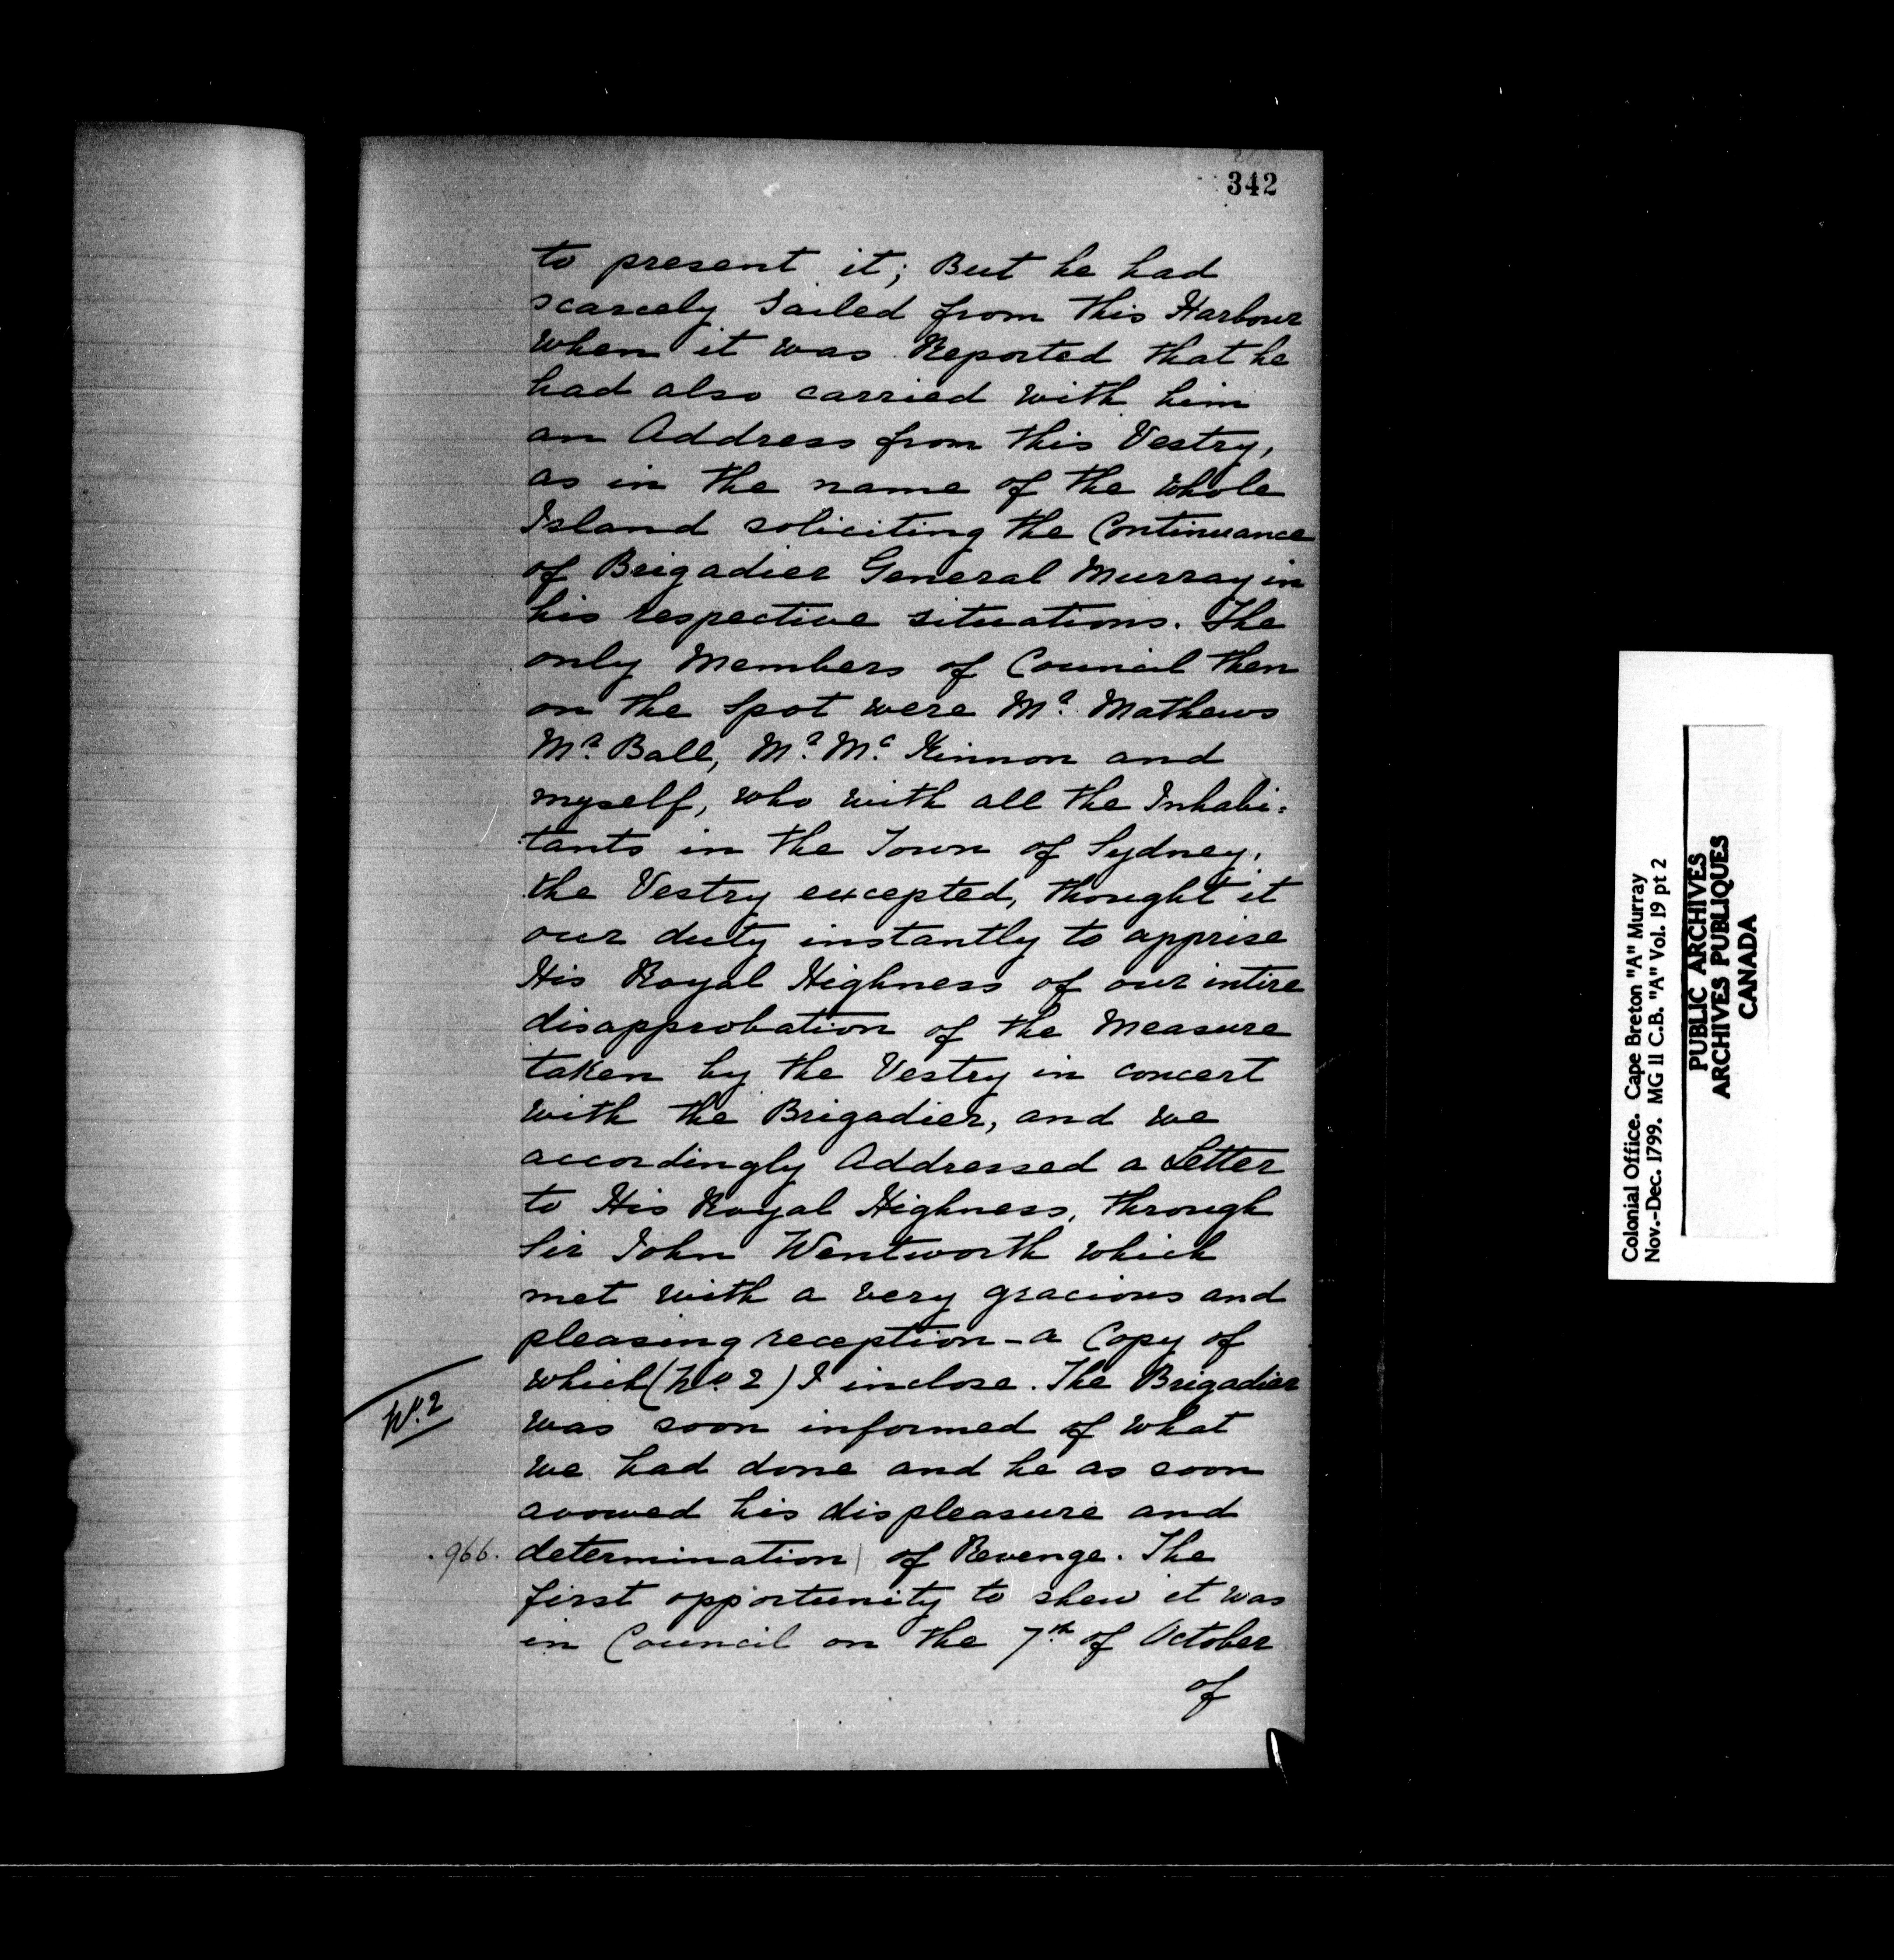 342
to present it; But he had
scarcely Sailed from this Harbour
when it was Reported that he
had also carried with him
an Address from this Vestry,
as in the name of the whole
Island soliciting the Continuance
of Brigadier General Murray in
his respective situations. The
only Members of Council then
on the Spot were Mr. Mathews
Mr. Ball, Mr. Mc. Kinnon and
myself, who with all the Inhabi-
tants in the Town of Sydney,
the Vestry excepted, thought it
our duty instantly to apprise
His Royal Highness of our intire
disapprobation of the Measure
taken by the Vestry in concert
with the Brigadier, and we
accordingly Addressed a Letter
to His Royal Highness, through
Sir John Wentworth which
met with a very gracious and
pleasing reception - a Copy of
which (No. 2) I inclose. The Brigadier
No. 2
was soon informed of what
we had done and he as soon
avowed his displeasure and
.966. determination | of Revenge. The
first opportunity to shew it was
in Council on the 7th. of October
of
Colonial Office. Cape Breton "A" Murray
Nov.-Dec. 1799. MG 11 C.B. "A" Vol. 19 pt 2
PUBLIC ARCHIVES
ARCHIVES PUBLIQUES
CANADA